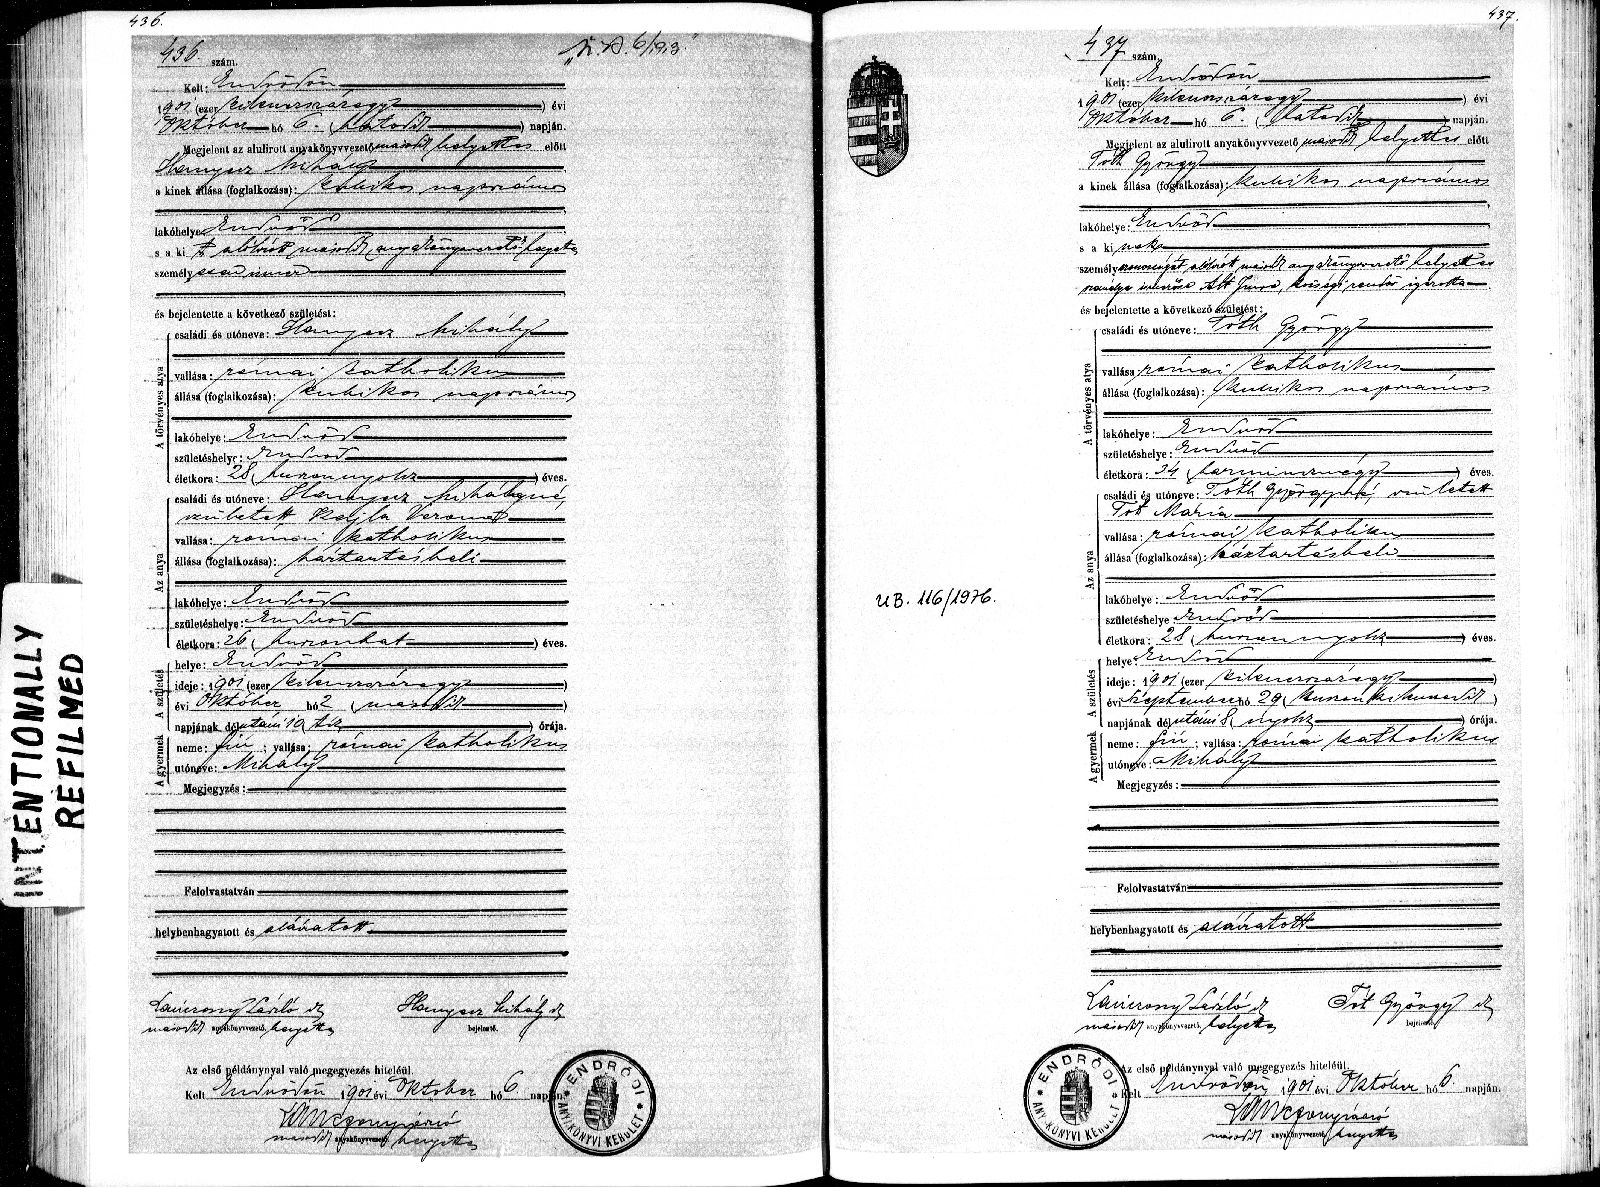 436.
436. szám.
Kelt: Endrődön
1901 (ezer kilencszázegy) évi
Október hó 6. (hatodik) napján.
Megjelent az alulirott anyakönyvvezető másodk helyettes előtt
Hanyecz Mihály
a kinek állása (foglalkozása): kubikos napszámos
lakóhelye Endrőd
s a ki t alólirott másodk anyakönyvvezető helyettes
személyesen ismer
és bejelentette a következő születést:
A törvényes atya
családi és utóneve: Hanyecz Mihály
vallása: római katholikus
állása (foglalkozása): kubikos napszámos
lakóhelye: Endrőd
születéshelye: Endrőd
életkora: 28 (huszonnyolcz) éves.
Az anya
családi és utóneve: Hanyecz Mihályné,
született Veronka
vallása: római katholikus
állása (foglalkozása): háztartásbeli
lakóhelye: Endrőd
születéshelye: Endrőd
életkora: 26 (huszonhat) éves.
A gyermek A születés
helye: Endrőd
ideje: 1901 (ezer kilencszázegy)
évi Október hó 2 (második)
napjának délutáni 10 tíz órája.
neme: fiú; vallása: római katholikus
utóneve: Mihály
Megjegyzés:
Felolvastatván
helybenhagyatott és aláiratott
László Hanyecz Mihály sk
másodk anyakönyvvezető helyettes bejelentő.
Az első példánynyal való megegyezés hiteléül.
Kelt Endrődön 1901 évi Október hó 6 napján
másodk anyakönyvvezető helyettes
ENDRŐDI ANYAKÖNYVI KERÜLET
INTENTIONALLY
REFILMED
437.
437 szám.
Kelt: Endrődön
1901 (ezer kilencszázegy) évi
Október hó 6. (hatodik) napján.
Megjelent az alulirott anyakönyvvezető másodk helyettes előtt
Tóth György
a kinek állása (foglalkozása): kubikos napszámos
lakóhelye: Endrőd
s a ki nek
személyazonosságát alólirott másodk anyakönyvvezető helyettes
személye ismerőse községi rendőr igazolta
és bejelentette a következő születést:
A törvényes atya
családi és utóneve: Tóth György
vallása: római katholikus
állása (foglalkozása): kubikos napszámos
lakóhelye: Endrőd
születéshelye: Endrőd
életkora: 34 (harmincznégy) éves.
Az anya
családi és utóneve: Tóth Györgyné, született
Tót Mária
vallása: római katholikus
állása (foglalkozása): háztartásbeli
lakóhelye: Endrőd
születéshelye: Endrőd
életkora: 28 (huszonnyolcz) éves.
A gyermek A születés
helye: Endrőd
ideje: 1901 (ezer kilencszázegy)
évi Szeptember hó 29 (huszonkilenczedik)
napjának délutáni 8 nyolcz órája.
neme: fiú; vallása: római katholikus
utóneve: Mihály
Megjegyzés:
Felolvastatván
helybenhagyatott és aláiratott
UB. 116/1976.
László Tót György sk
másodk anyakönyvvezető helyettes bejelentő.
Az első példánynyal való megegyezés hiteléül.
Kelt Endrődön 1901 évi Október hó 6. napján.
másodk anyakönyvvezető helyettes
ENDRŐDI ANYAKÖNYVI KERÜLET